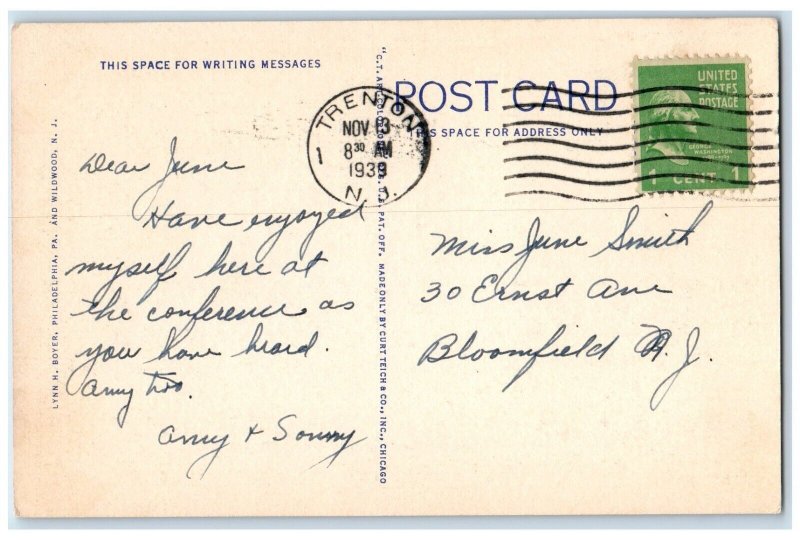 THIS SPACE FOR WRITING MESSAGES
POST CARD
THIS SPACE FOR ADDRESS ONLY
UNITED
STATES
POSTAGE
GEORGE
WASHINGTON
1 CENT 1
TRENTON
1
NOV 13
8 30 AM
1939
N. J.
Dear June
Have enjoyed
myself here at
the conference as
you have heard.
Amy too.
Amy + Sonny
Miss June Smith
30 Ernst Ave
Bloomfield N. J.
LYNN H. BOYER, PHILADELPHIA, PA. AND WILDWOOD, N. J.
"C.T. ART-COLORTONE" REG. U.S. PAT. OFF. MADE ONLY BY CURT TEICH & CO., INC., CHICAGO